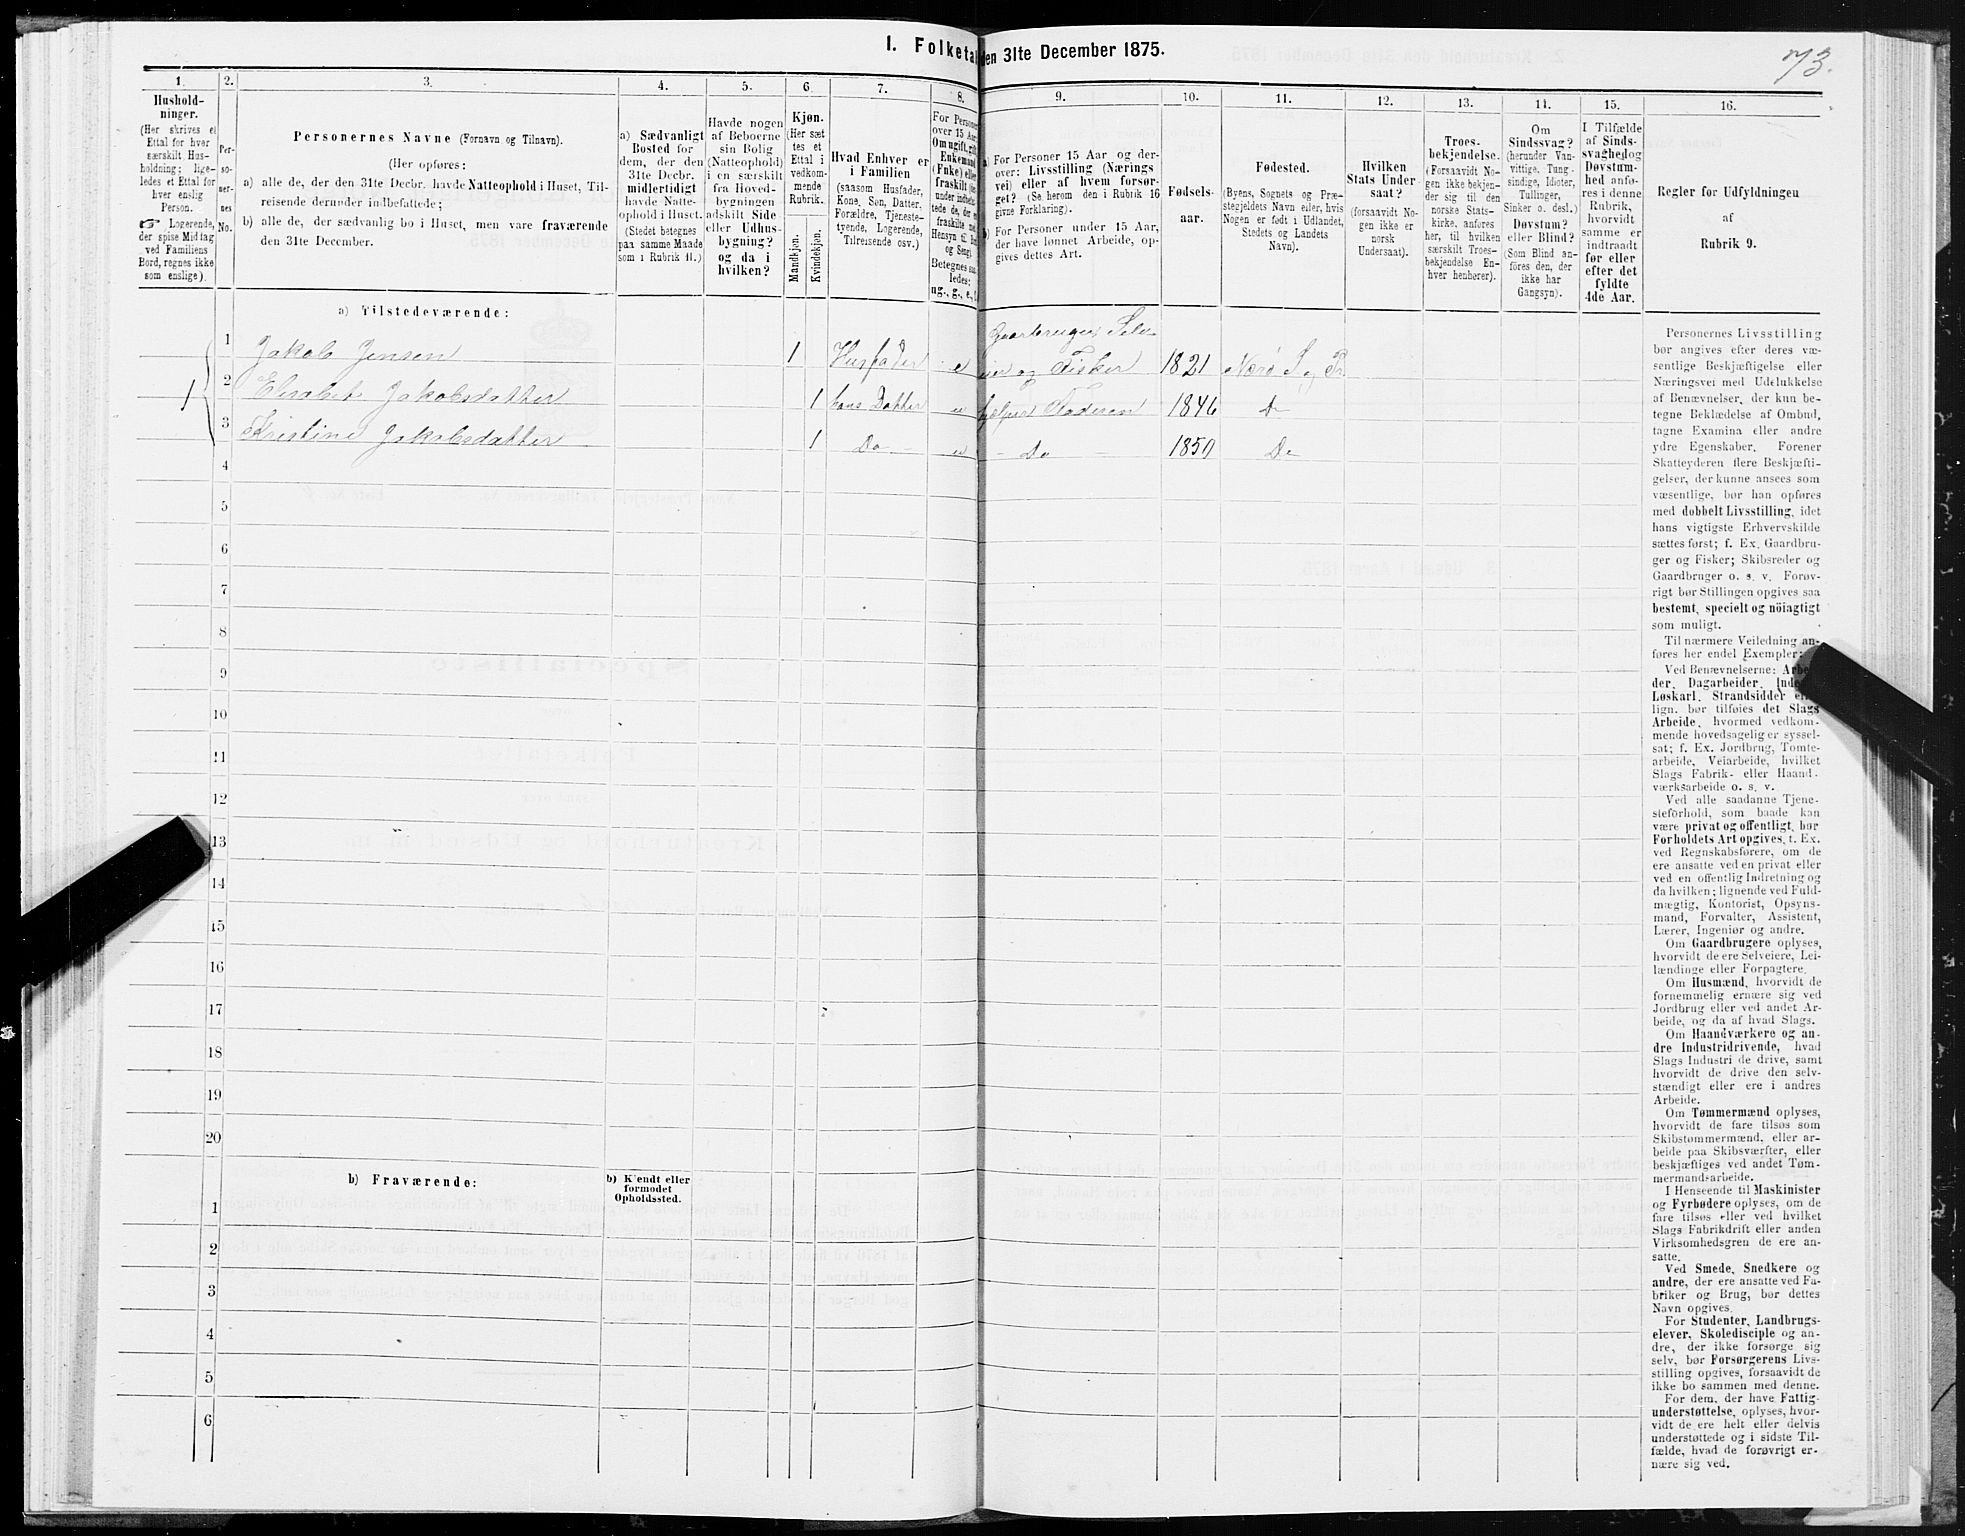 I. Folketal den 31te December 1875.
73.
1.
2.
3.
4.
5.
6.
7.
8.
9.
10.
11.
12.
13.
14.
15.
16.
Hushold-
ninger.
(Her skrives et
Ettal for hver
særskilt Hus-
holdning; lige-
ledes et Ettal for
hver enslig
Person.
☞ Logerende,
der spise Middag
ved Familiens
Bord, regnes ikke
som enslige).
Per-
so-
ner-
nes
No.
Personernes Navne (Fornavn og Tilnavn).
(Her opføres:
a) alle de, der den 31te Decbr. havde Natteophold i Huset, Til-
reisende derunder indbefattede;
b) alle de, der sædvanlig bo i Huset, men vare fraværende
den 31te December.
a) Sædvanligt
Bosted for
dem, der den
31te Decbr.
midlertidigt
havde Natte-
ophold i Huset.
(Stedet betegnes
paa samme Maade
som i Rubrik 11.)
Havde nogen
af Beboerne
sin Bolig
(Natteophold)
i en særskilt
fra Hoved-
bygningen
adskilt Side
eller Udhus-
bygning?
og da i
hvilken?
Kjøn.
(Her sæt
tes et
Ettal i
vedkom-
mende
Rubrik.
Mandkjøn.
Kvindekjøn.
Hvad Enhver er
i Familien
(saasom Husfader,
Kone, Søn, Datter,
Forældre, Tjeneste-
tyende, Logerende,
Tilreisende osv.)
For Personer
over 15 Aar:
Om ugift, gift,
Enkemand
(Enke) eller
fraskilt
Betegnes saa-
ledes:
ug., g., e., f.
a) For Personer 15 Aar og der-
over: Livsstilling (Nærings
vei) eller af hvem forsør-
get? (Se herom den i Rubrik 16
givne Forklaring).
b) For Personer under 15 Aar,
der have lønnet Arbeide, op-
gives dettes Art.
Fødsels-
aar.
Fødested.
(Byens, Sognets og Præ-
stegjeldets Navn eller, hvis
Nogen er født i Udlandet,
Stedets og Landets
Navn).
Hvilken
Stats Under
saat?
(forsaavidt No-
gen ikke er
norsk
Undersaat).
Troes-
bekjendelse.
(Forsaavidt No-
gen ikke bekjen-
der sig til den
norske Stats-
kirke, anføres
her, til hvilken
særskilt Troes-
bekjendelse En-
hver henhører).
Om
Sindssvag?
(herunder Van-
vittige, Tung-
sindige, Idioter,
Tullinger,
Sinker o. desl.)
Døvstum?
eller Blind?
(Som Blind an-
føres den, der
ikke har
Gangsyn).
I Tilfælde
af Sinds-
svaghed og
Døvstum-
hed anfø-
res i denne
Rubrik,
hvorvidt
samme er
indtraadt
før eller
efter det
fyldte
4de Aar.
Regler for Udfyldningen
af
Rubrik 9.
a) Tilstedeværende:
1
1 Jakob Jensen 1 Husfader e Gaardbruger Selv-
eier og Fisker 1821 Nærø S og Pr
2 Elisabet Jakobsdatter 1 hans Datter u hjelper Faderen 1846 Do
3 Kristine Jakobsdatter 1 Do u Do 1850 Do
4
5
6
7
8
9
10
11
12
13
14
15
16
17
18
19
20
b) Fraværende:
b) Kjendt eller
formodet
Opholdssted.
1
2
3
4
5
6
Personernes Livsstilling
bør angives efter deres væ-
sentlige Beskjæftigelse eller
Næringsvei med Udelukkelse
af Benævnelser, der kun be-
tegne Beklædelse af Ombud,
tagne Examina eller andre
ydre Egenskaber. Forener
Skatteyderen flere Beskjæfti-
gelser, der kunne ansees som
væsentlige, bør han opføres
med dobbelt Livsstilling, idet
hans vigtigste Erhvervskilde
sættes først; f. Ex. Gaardbru-
ger og Fisker; Skibsreder og
Gaardbruger o. s. v. Forøv-
rigt bør Stillingen opgives saa
bestemt, specielt og nöiagtigt
som muligt.
Til nærmere Veiledning an-
føres her endel Exempler:
Ved Benævnelserne: Arbei-
der, Dagarbeider, Inderst,
Løskarl, Strandsidder eller
lign. bør tilføies det Slags
Arbeide, hvormed vedkom-
mende hovedsagelig er syssel-
sat; f. Ex. Jordbrug, Tomte-
arbeide, Veiarbeide, hvilket
Slags Fabrik- eller Haand-
værksarbeide o. s. v.
Ved alle saadanne Tjene-
steforhold, som baade kan
være privat og offentligt, bør
Forholdets Art opgives, t. Ex.
ved Regnskabsførere, om de
ere ansatte ved en privat eller
ved en offentlig Indretning og
da hvilken; lignende ved Fuld-
mægtig, Kontorist, Opsyns-
mand, Forvalter, Assistent,
Lærer, Ingeniør og andre.
Om Gaardbrugere oplyses,
hvorvidt de ere Selveiere, Lei-
lændinge eller Forpagtere.
Om Husmænd, hvorvidt de
fornemmelig ernære sig ved
Jordbrug eller ved andet Ar-
beide, og da af hvad Slags.
Om Haandværkere og an-
dre Industridrivende, hvad
Slags Industri de drive, samt
hvorvidt de drive den selv-
stændigt eller ere i andres
Arbeide.
Om Tømmermænd oplyses,
hvorvidt de fare tilsøs som
Skibstømmermænd, eller ar-
beide paa Skibsværfter, eller
beskjæftiges ved andet Tøm-
mermandsarbeide.
I Henseende til Maskinister
og Fyrbødere oplyses, om de
fare tilsøs eller ved hvilket
Slags Fabrikdrift eller anden
Virksomhedsgren de ere an-
satte.
Ved Smede, Snedkere og
andre, der ere ansatte ved Fa-
briker og Brug, bør dettes
Navn opgives.
For Studenter, Landbrugs-
elever, Skoledisciple og an-
dre, der ikke forsørge sig
selv, bør Forsørgerens Livs-
stilling opgives, forsaavidt de
ikke bo sammen med denne.
For dem, der have Fattig-
understøttelse, oplyses, hvor-
vidt de ere helt eller delvis
understøttede og i sidste Til-
fælde, hvad de forøvrigt er-
nære sig ved.